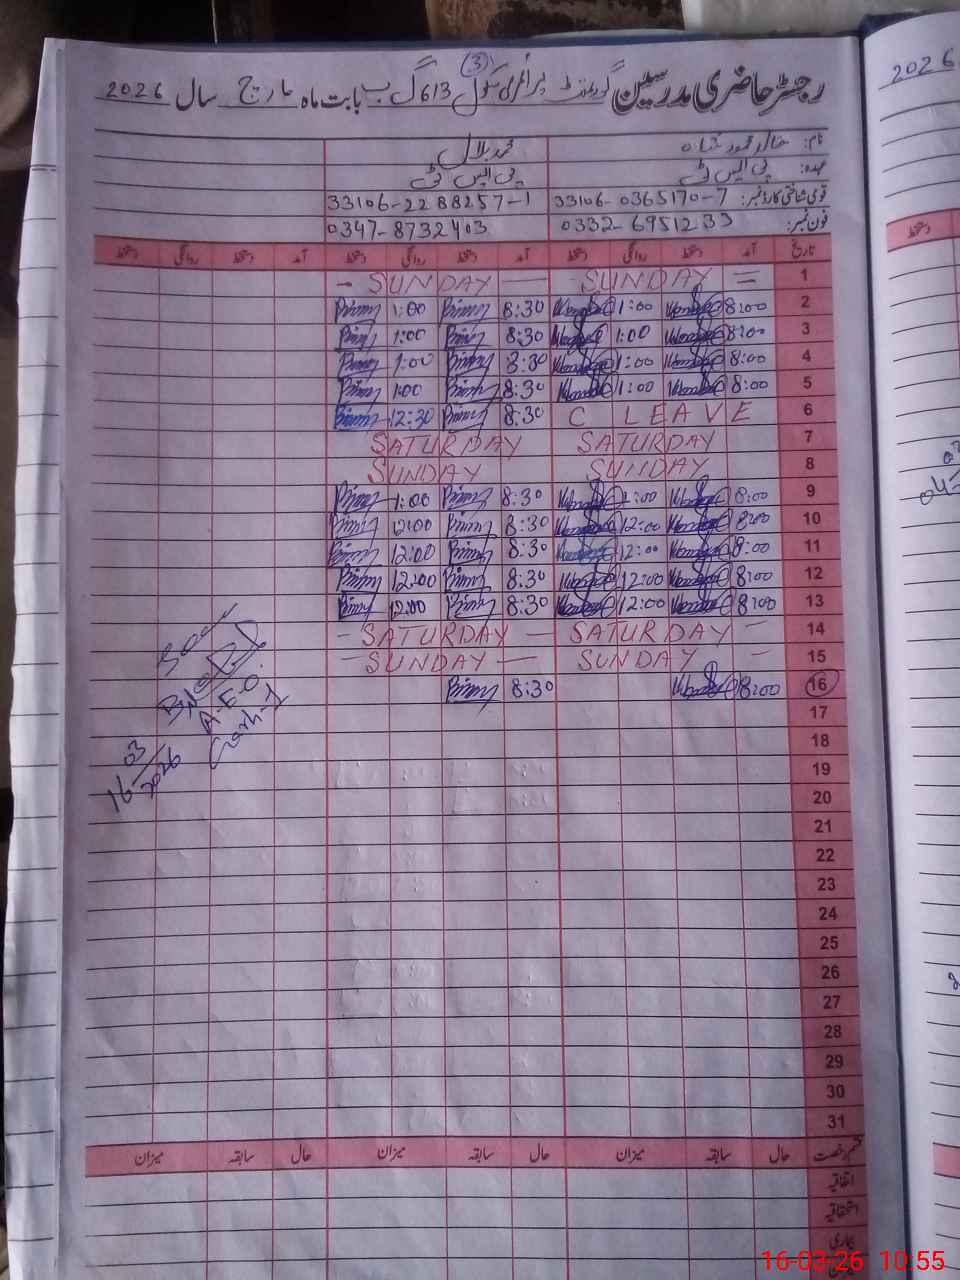 (3)
رجسٹر حاضری مدرسین گورنمنٹ پرائمری سکول 613 گ ب بابت ماہ مارچ سال 2026
نام: خالد محمود شاہ محمد بلال
عہدہ: پی ایس ٹی پی ایس ٹی
قومی شناختی کارڈ نمبر: 33106-0365170-7 33106-2288257-1
فون نمبر: 0332-6951233 0347-8732403
تاریخ آمد دستخط روانگی دستخط آمد دستخط روانگی دستخط آمد دستخط روانگی دستخط
1 SUNDAY SUNDAY
2 8:00 1:00 8:30 1:00
3 8:00 1:00 8:30 1:00
4 8:00 1:00 8:30 1:00
5 8:00 1:00 8:30 1:00
6 C LEAVE 8:30 12:30
7 SATURDAY SATURDAY
8 SUNDAY SUNDAY
9 8:00 1:00 8:30 1:00
10 8:00 12:00 8:30 12:00
11 8:00 12:00 8:30 12:00
12 8:00 12:00 8:30 12:00
13 8:00 12:00 8:30 12:00
14 SATURDAY SATURDAY
15 SUNDAY SUNDAY
16 8:00 8:30
17
18
19
20
21
22
23
24
25
26
27
28
29
30
31
A.E.O.
16/03/2026
قسم رخصت حال سابقہ میزان حال سابقہ میزان حال سابقہ میزان
اتفاقیہ
استحقاقیہ
بیماری
2026
دستخط
16-03-26 10:55